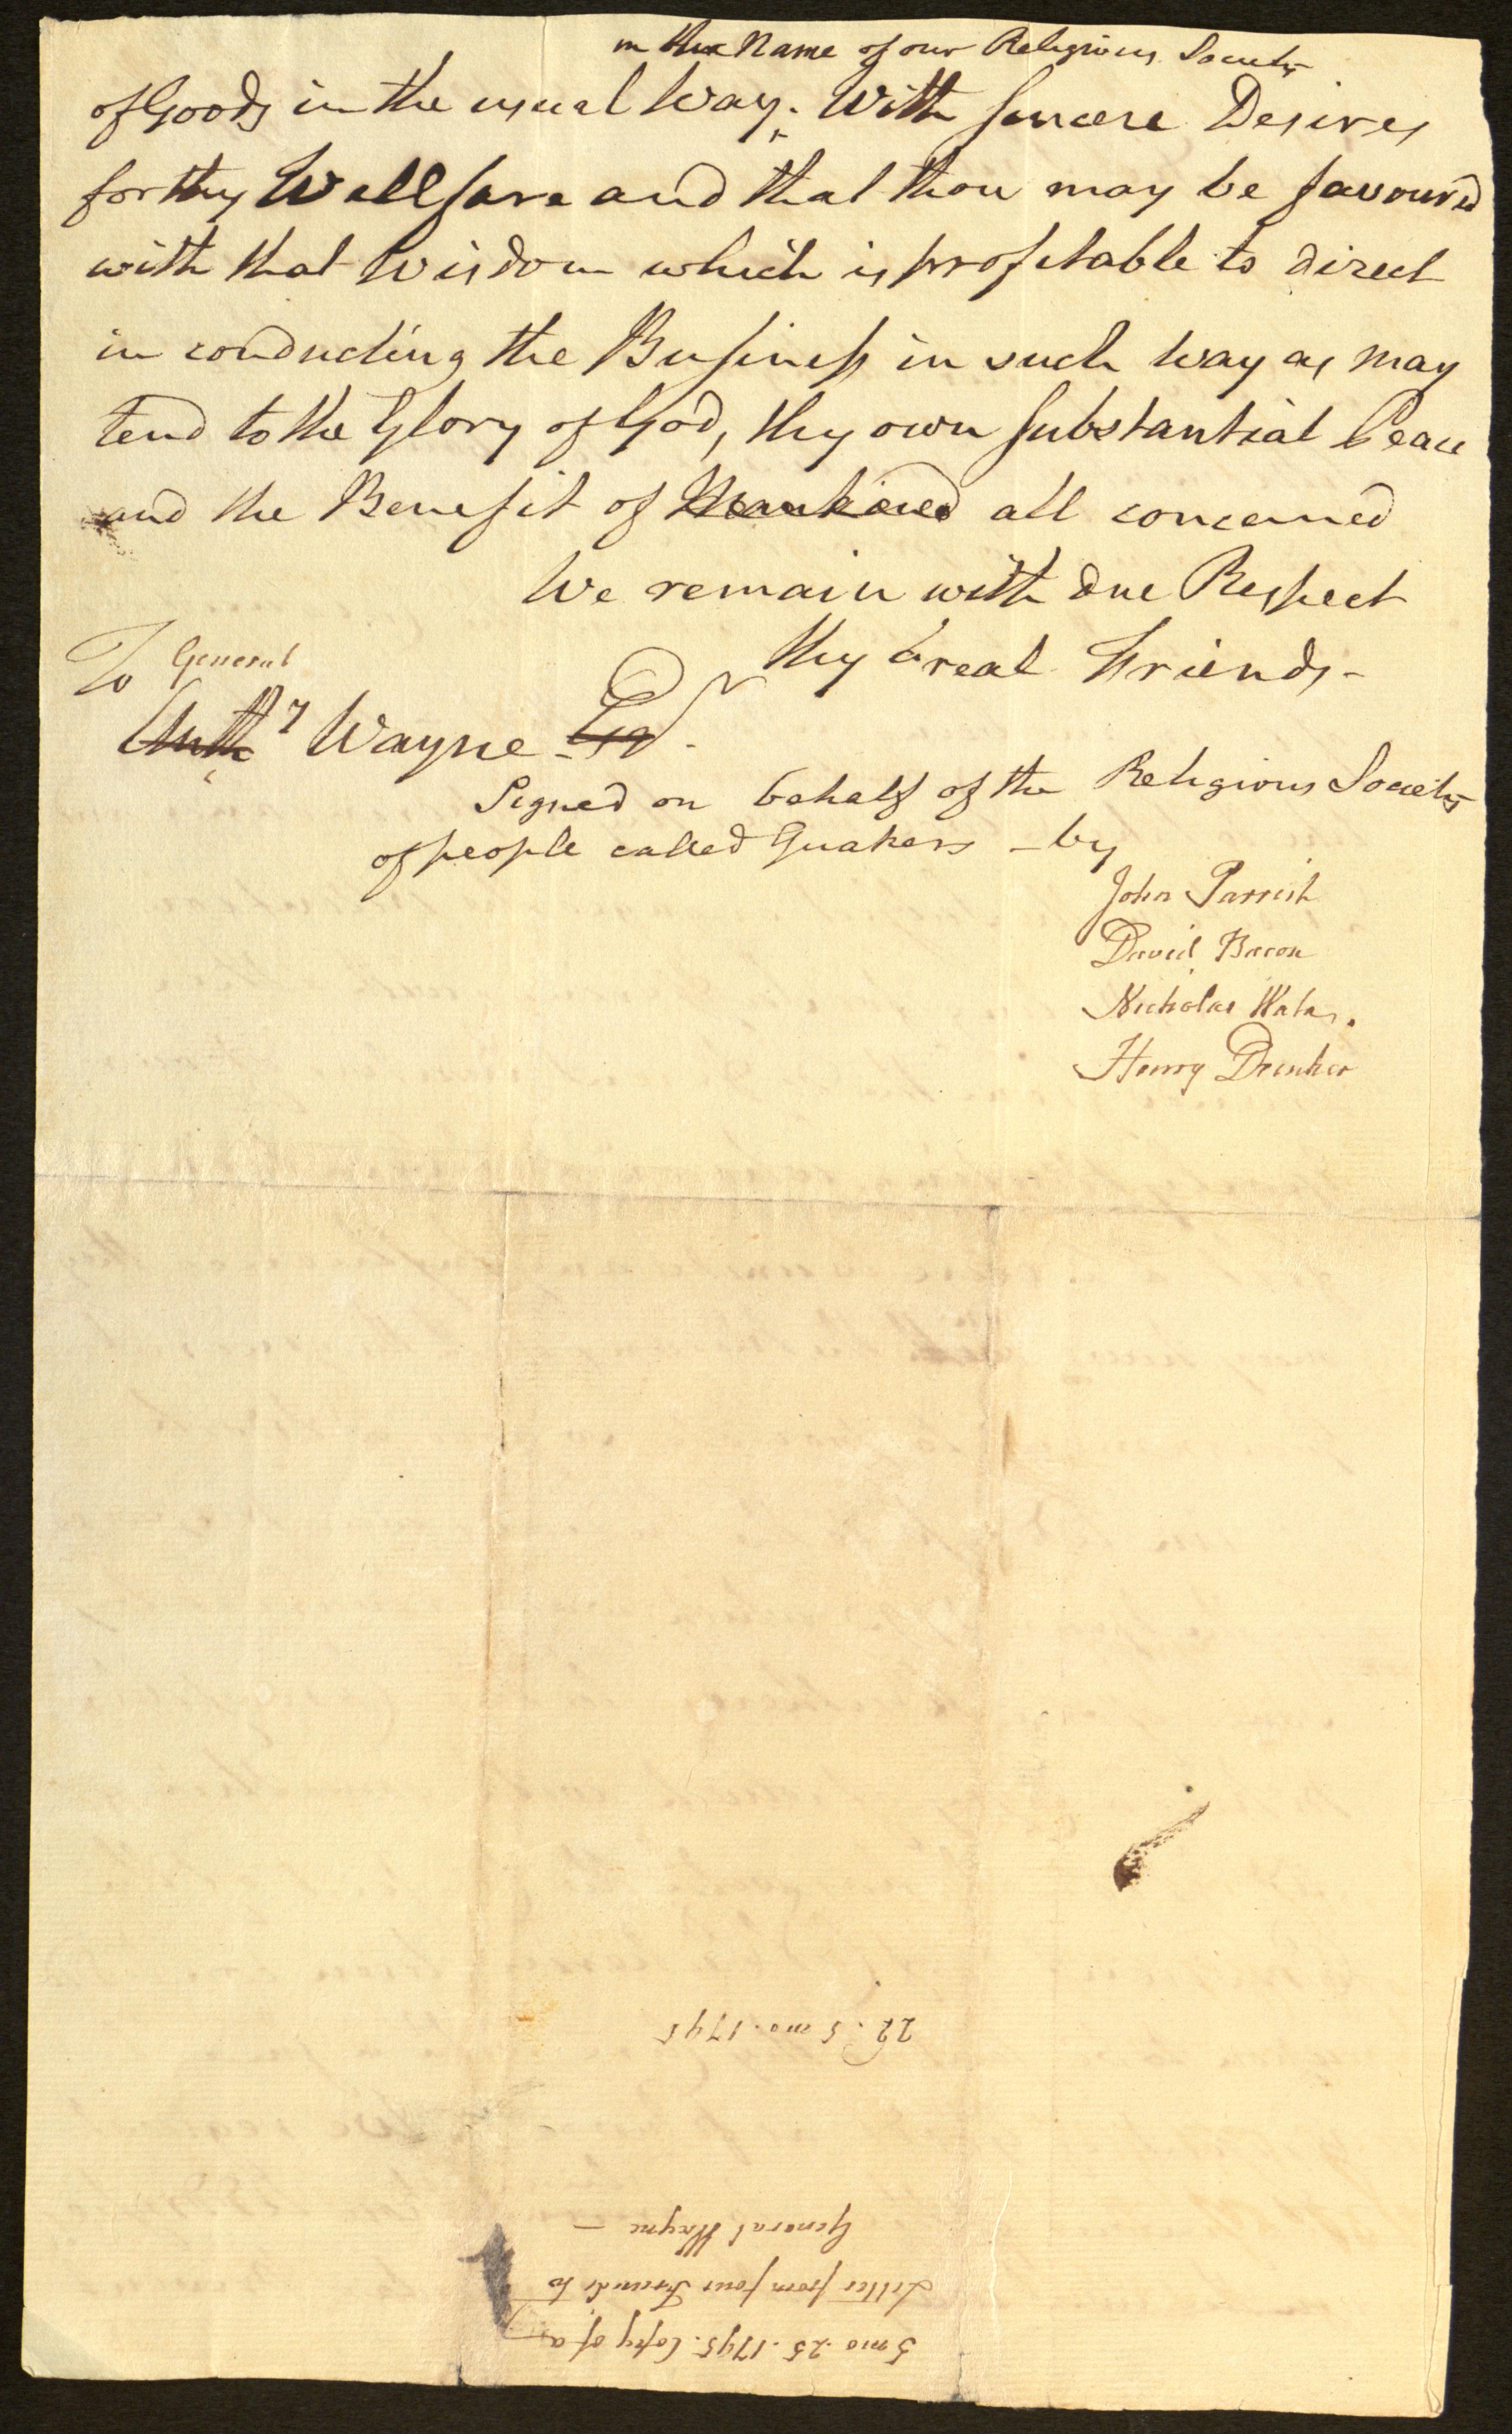 in the Name of our Religious Society
of Goods in the usual Way. With sincere Desires
for thy Wellfare and that thou may be favoured
with that Wisdom which is profitable to direct
in conducting the Business in such way as may
tend to the Glory of God, thy own substantial Peace
and the Benefit of Mankind all concerned
We remain with due Respect
thy real Friends -
To General
Anthy Wayne Esqr
Signed on behalf of the Religious Society
of people called Quakers - by
John Parrish
David Bacon
Nicholas Waln.
Henry Drinker
22. 5 mo. 1795
5 mo. 25. 1795. Copy of a
Letter from four Friends to
General Wayne -